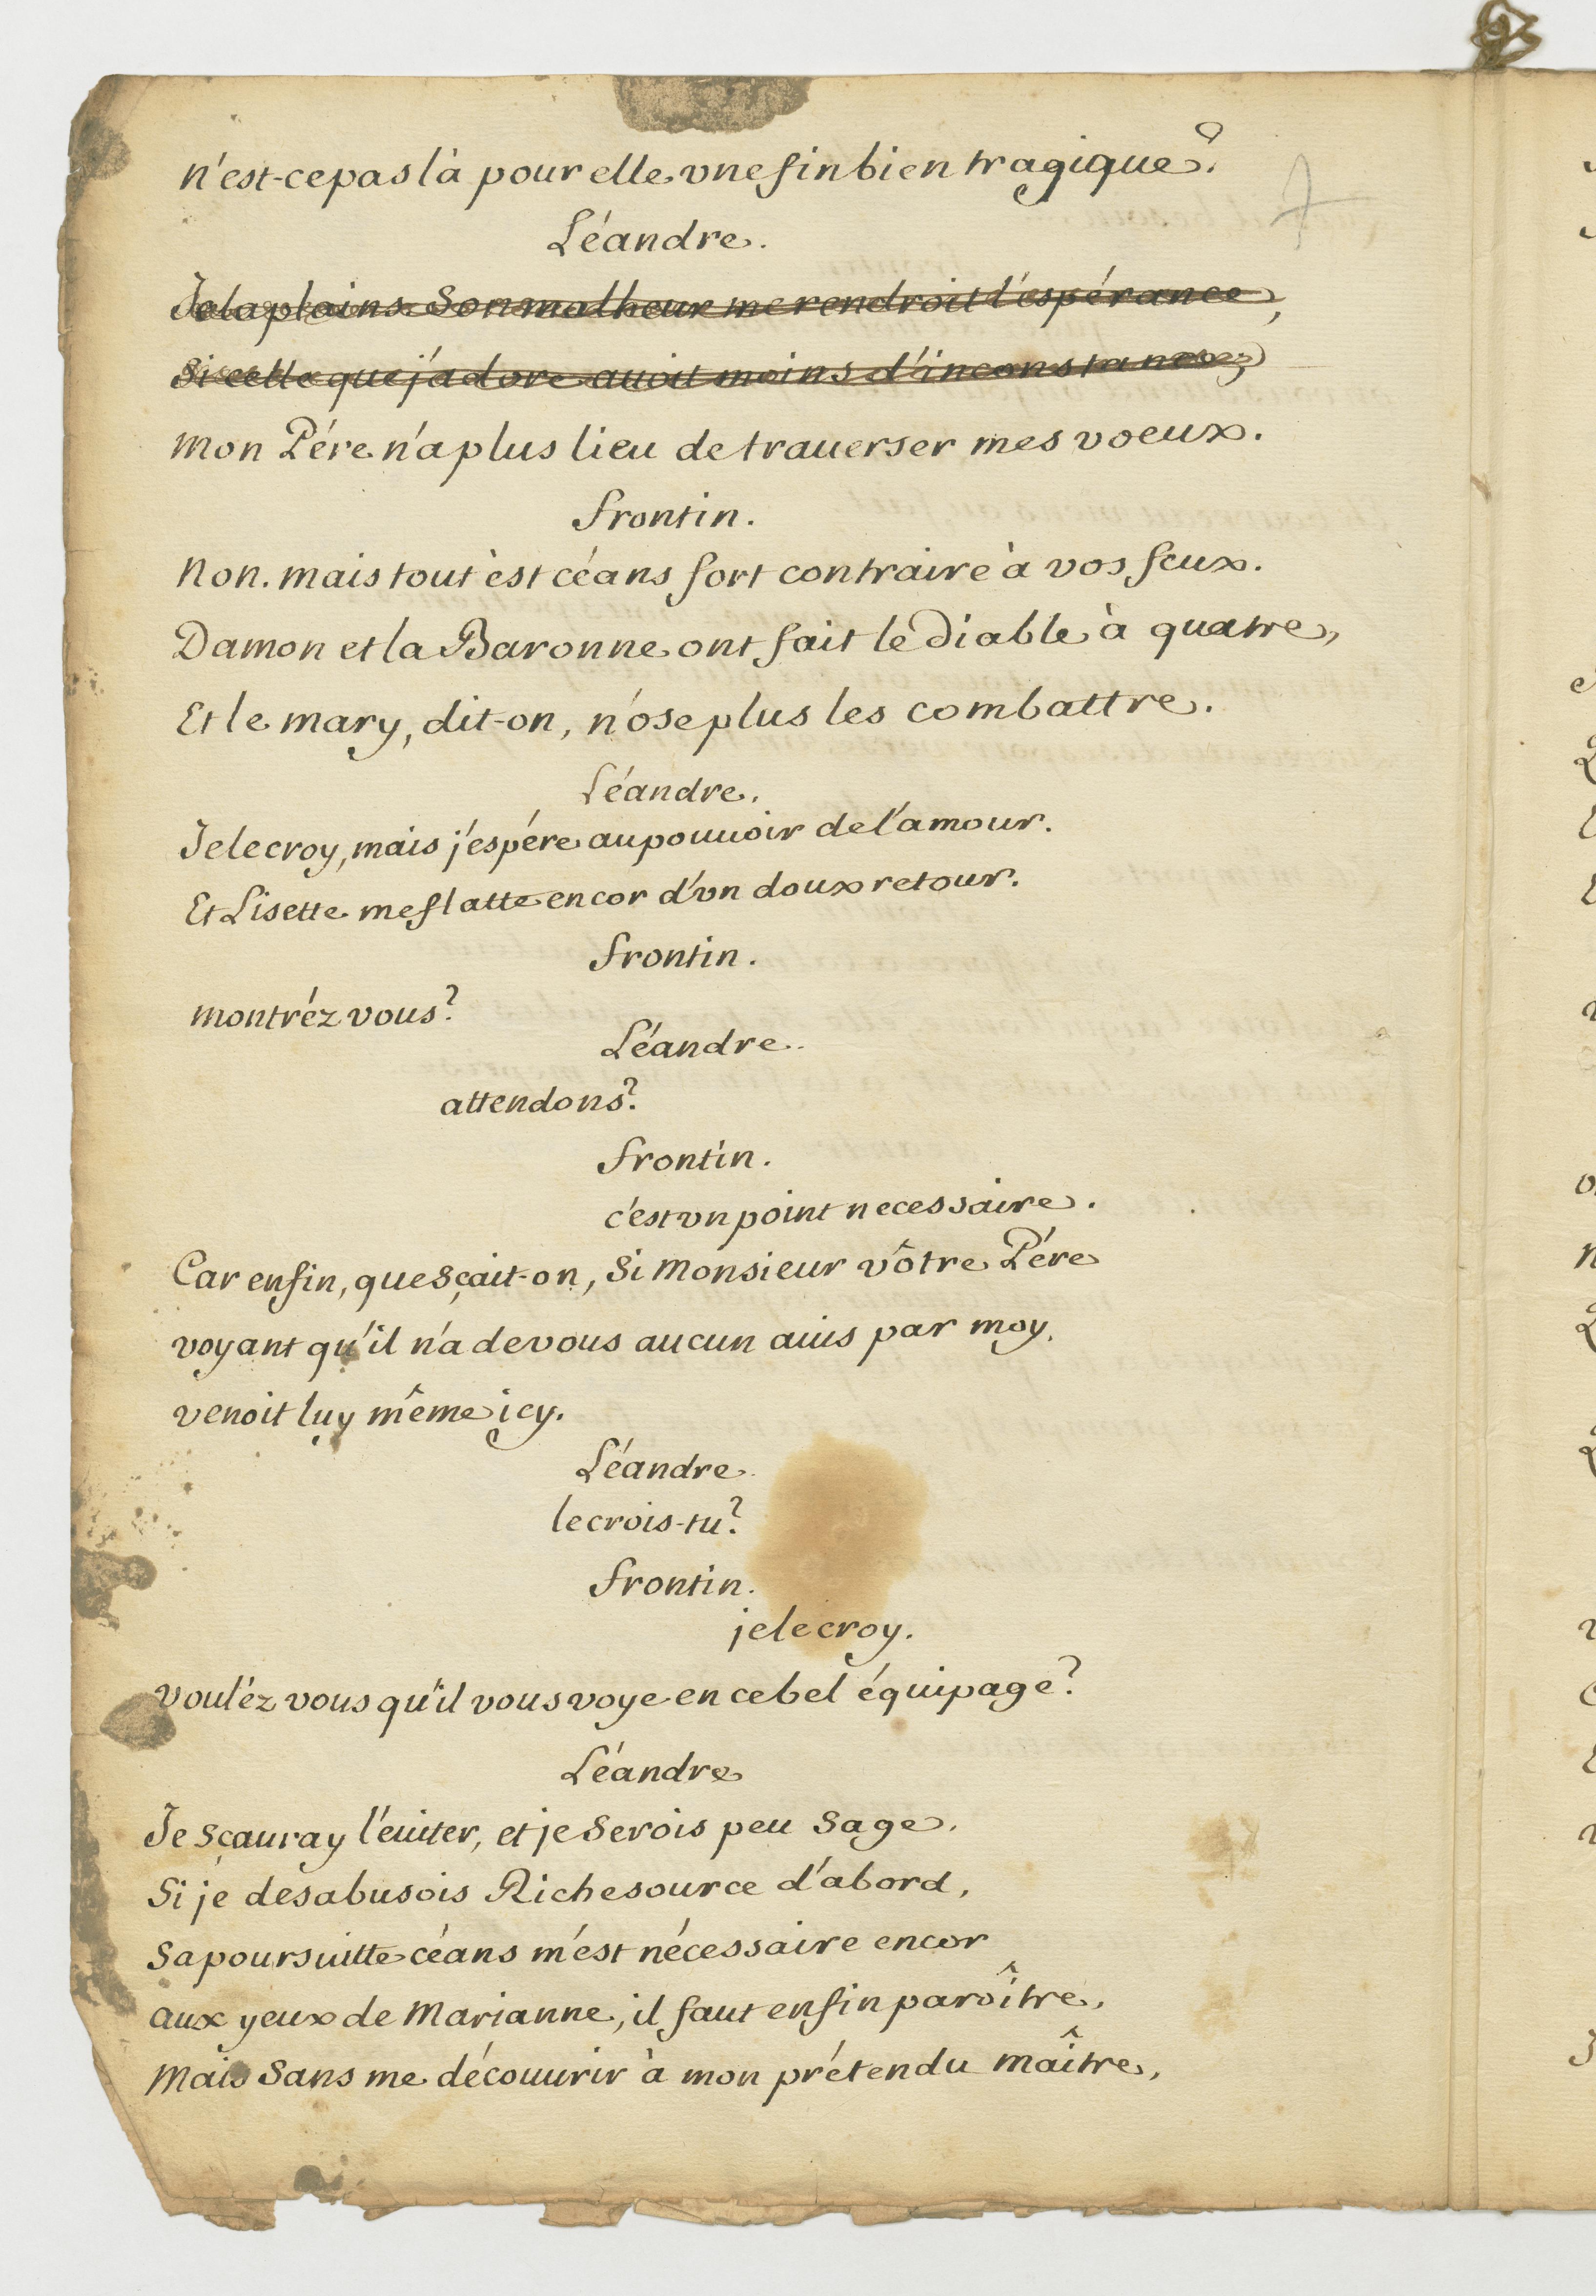 n'est-ce pas là pour elle vne fin bien tragique?
Léandre.
Je la plains. Son malheur me rendroit l'espérance,
Si celle que j'adore auoit moins d'inconstance;
mon Pére n'a plus lieu de trauerser mes voeux.
frontin.
non. mais tout èst céans fort contraire à vos feux.
Damon et la Baronne ont fait le Diable à quatre,
Et le mary, dit-on, n'ose plus les combattre.
Léandre.
Je le croy, mais j'espére au pouuoir de l'amour.
Et Lisette me flatte encor d'vn doux retour.
frontin.
montréz vous?
Léandre.
attendons?
frontin.
c'est vn point necessaire.
Car enfin, que sçait-on, si monsieur vôtre Pére
voyant qu'il n'a de vous aucun auis par moy,
venoit luy même icy.
Léandre.
le crois-tu?
frontin.
je le croy.
vouléz vous qu'il vous voye en ce bel équipage?
Léandre
Je sçauray l'euiter, et je serois peu sage.
Si je desabusois Richesource d'abord,
sa poursuitte céans m'est nécessaire encor
aux yeux de Marianne, il faut enfin paroître,
mais sans me découurir à mon prétendu maître,